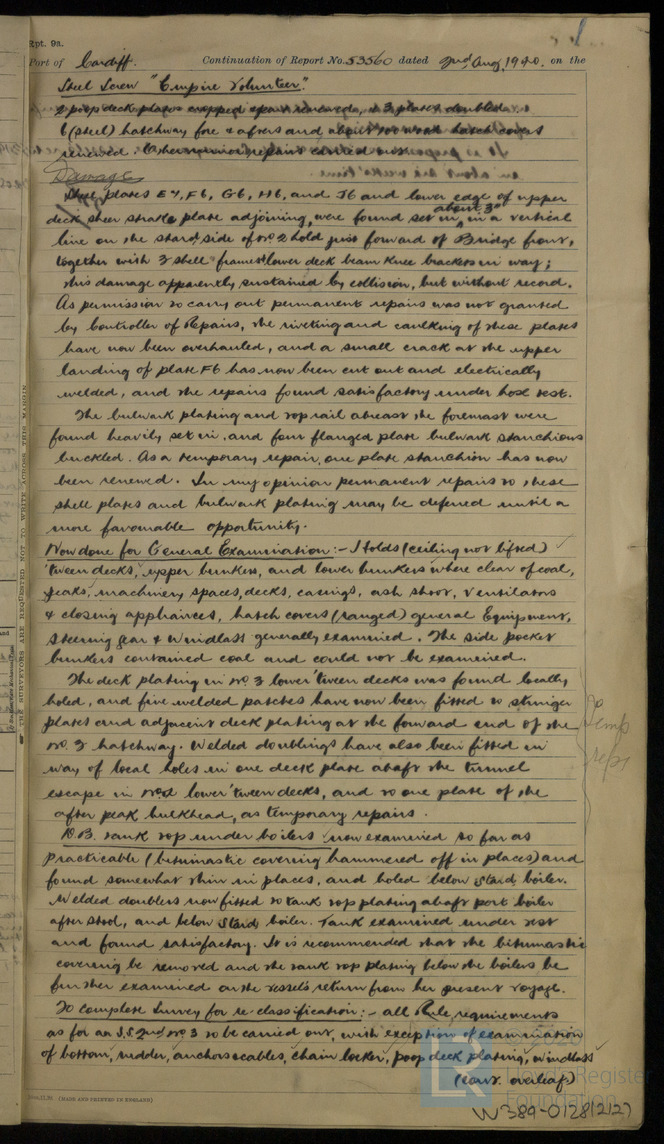 Rpt. 9a.
Port of Cardiff. Continuation of Report No. 53560 dated 2nd Aug, 1940. on the
Steel Screw "Empire Volunteer."
2 poop deck plates cropped & part renewed, & 3 plates doubled
6 (steel) hatchway fore & afters and about 100 wood hatch covers
renewed. Other minor repairs carried out.
Damage
Shell plates E7, F6, G6, H6, and J6 and lower edge of upper
deck sheer strake plate adjoining, were found set in about 3" in a vertical
line on the starbd. side of No. 2 hold just forward of Bridge front,
together with 3 shell frames & lower deck beam knee brackets in way;
this damage apparently sustained by collision, but without record.
As permission to carry out permanent repairs was not granted
by Controller of Repairs, the riveting and caulking of these plates
have now been overhauled, and a small crack at the upper
landing of plate F6 has now been cut out and electrically
welded, and the repairs found satisfactory under hose test.
The bulwark plating and top rail abreast the foremast were
found heavily set in, and four flanged plate bulwark stanchions
buckled. As a temporary repair, one plate stanchion has now
been renewed. In my opinion permanent repairs to these
shell plates and bulwark plating may be deferred until a
more favourable opportunity.
Now done for General Examination:- Holds (ceiling not lifted)
'tween decks, upper bunkers, and lower bunkers where clear of coal,
peaks, machinery spaces, decks, casings, ash shoot, ventilators
& closing appliances, hatch covers (ranged) general Equipment,
steering gear & windlass generally examined. The side pocket
bunkers contained coal and could not be examined.
The deck plating in No. 3 lower 'tween decks was found locally
holed, and five welded patches have now been fitted to stringer
plates and adjacent deck plating at the forward end of the
No. 3 hatchway. Welded doublings have also been fitted in
way of local holes in one deck plate abaft the tunnel
escape in lower 'tween decks, and to one plate of the
after peak bulkhead, as temporary repairs.
Temp
reps
D.B. tank top under boilers now examined so far as
practicable (bitumastic covering hammered off in places) and
found somewhat thin in places, and holed below Starbd. boiler.
Welded doublers now fitted to tank top plating abaft port boiler
after stool, and below Starbd. boiler. Tank examined under test
and found satisfactory. It is recommended that the bitumastic
covering be removed and the tank top plating below the boilers be
further examined on the vessel's return from her present voyage.
To complete Survey for re-classification:- all Rule requirements
as for an S.S. 2nd No. 3 to be carried out, with exception of examination
of bottom, rudder, anchors & cables, chain locker, poop deck plating, windlass
(cont. overleaf)
THE SURVEYORS ARE REQUESTED NOT TO WRITE ACROSS THIS MARGIN
(MADE AND PRINTED IN ENGLAND)
Lloyd's Register
Foundation
W389-0128(2/2)